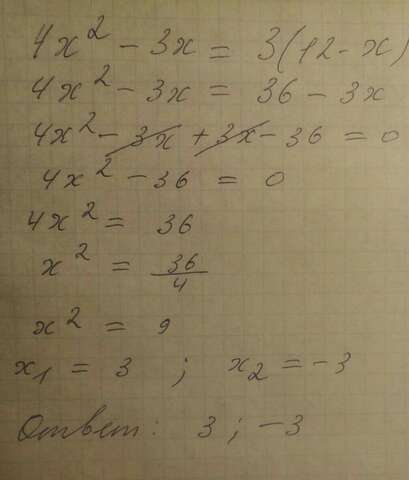 4x² - 3x = 3(12 - x)
4x² - 3x = 36 - 3x
4x² - 3x + 3x - 36 = 0
4x² - 36 = 0
4x² = 36
x² = 36/4
x² = 9
x₁ = 3 ; x₂ = -3
Ответ: 3 ; -3